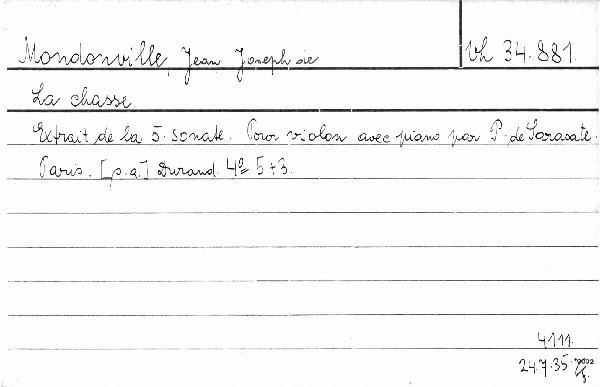 Mondonville, Jean Joseph de Vh 34.881.
La chasse.
Extrait de la 5. sonate. Pour violon avec piano par P. de Sarasate.
Paris. [s.a.] Durand. 4º 5+3.
4111.
24.7.35.